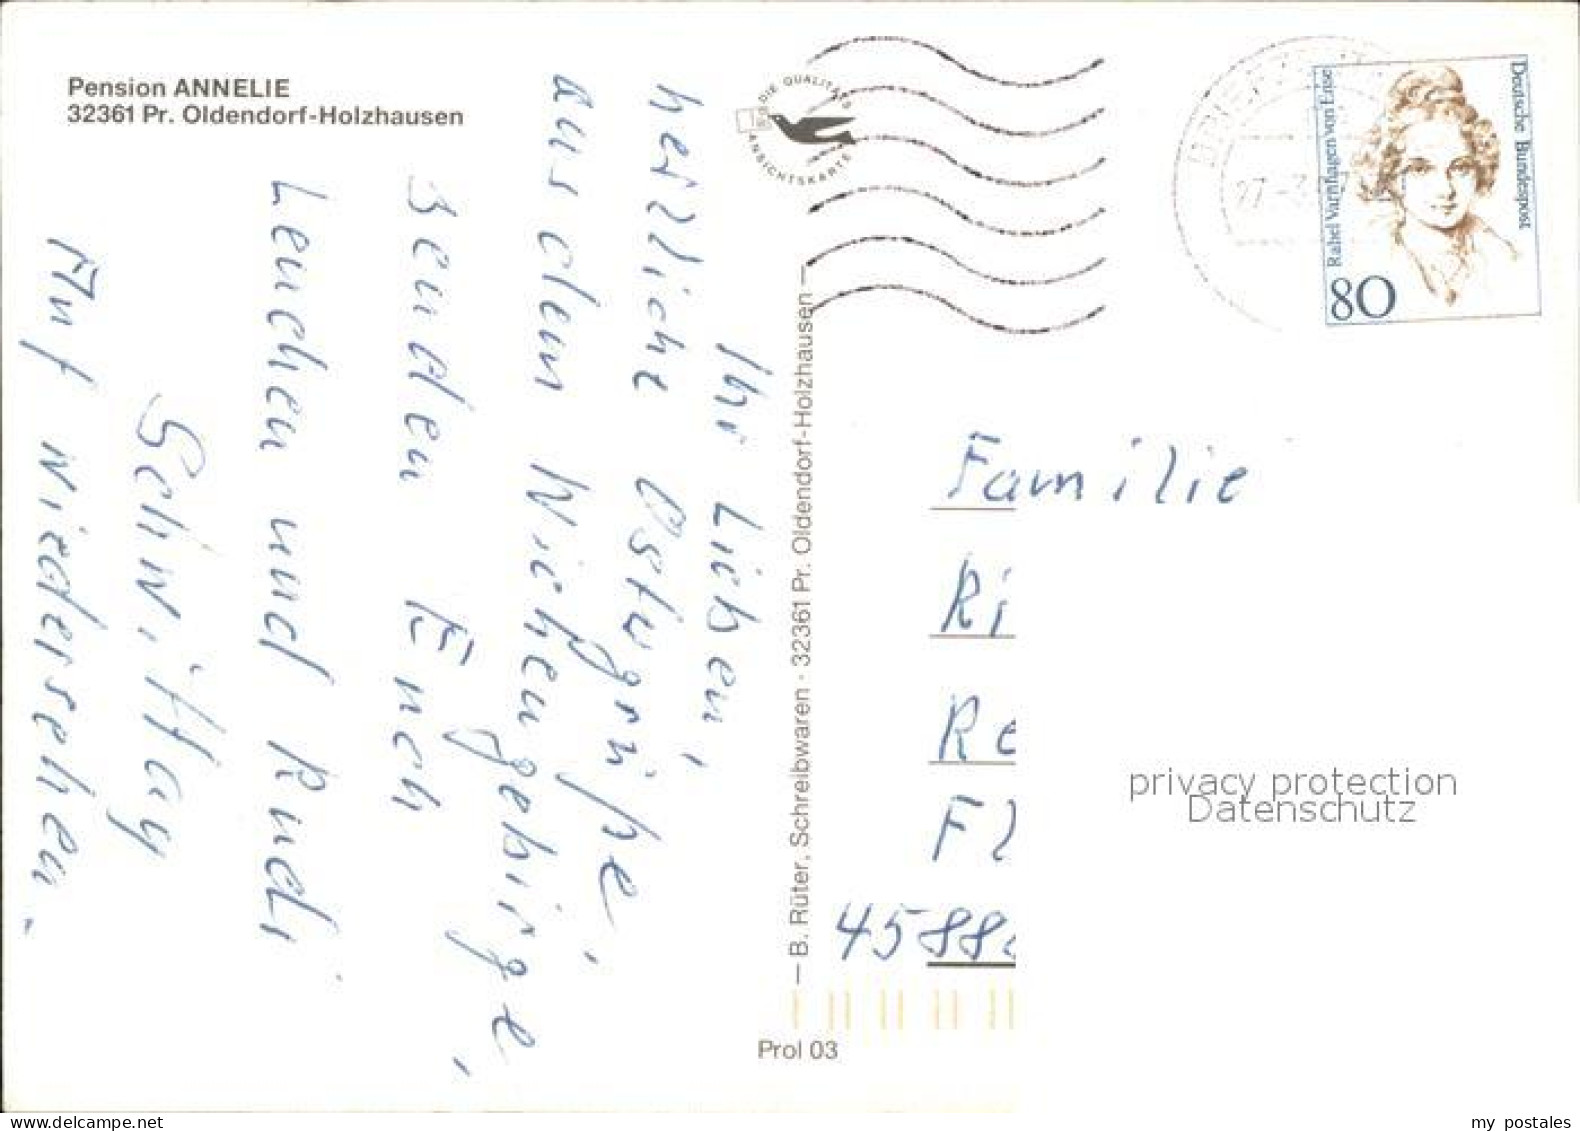 Pension ANNELIE
32361 Pr. Oldendorf-Holzhausen
Ihr Lieben,
herzliche Ostergrüße,
aus dem Wiehengebirge,
senden Euch
Lenchen und Rudi
Schw. Hay
Auf Wiedersehen.
DIE QUALITÄTS
ANSICHTSKARTE
B. Rüter, Schreibwaren · 32361 Pr. Oldendorf-Holzhausen
Prol 03
Deutsche Bundespost
Rahel Varnhagen von Ense
80
Familie
Ri
Re
Fl
4588
privacy protection
Datenschutz
www.delcampe.net
my_postales